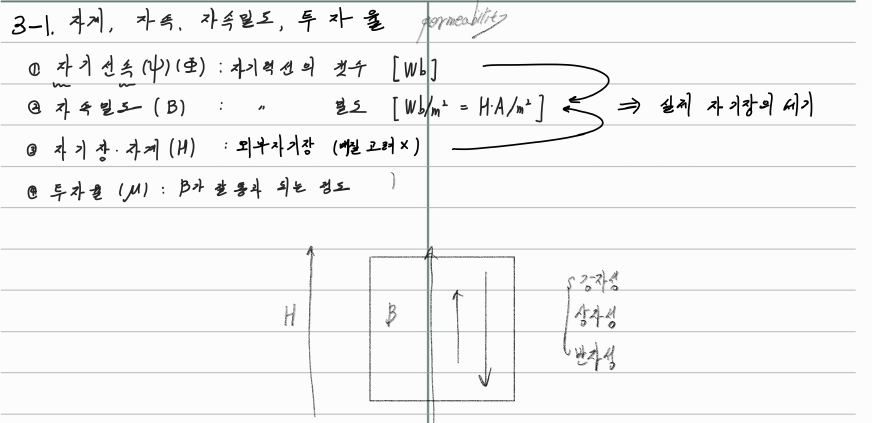 3-1. 자계, 자속, 자속밀도, 투자율 permeability
① 자기선속(ψ)(Φ) : 자기력선의 갯수 [Wb]
② 자속밀도 (B) : 〃 밀도 [Wb/m² = H·A/m²] ⇒ 실제 자기장의 세기
③ 자기장·자계(H) : 외부자기장 (매질 고려 X)
④ 투자율 (μ) : B가 잘 통과 되는 정도
H
B
강자성
상자성
반자성